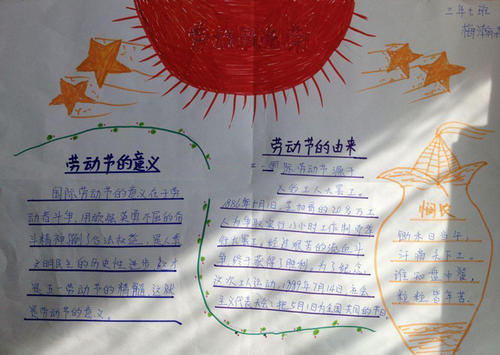 三年七班
梅瀚森
劳动最光荣
劳动节的意义
国际劳动节的意义在于劳
动者斗争,用顽强英勇不屈的奋
斗精神
文明民主的历史性进步
是五一劳动节的精髓 这就
是劳动节的意义。
劳动节的由来
五一国际劳动节源于
大罢工。
1886年 月1日,芝加哥的20多万工
人为争取实行八小时工作制而举
行大罢工,经过艰苦的流血斗
争,终于获得了胜利,为了纪念
这次工人运动,1889年7月14日
主义代表大会 把5月1日 为全国共同的节日
悯农
锄禾日当午,
汗滴禾下土。
谁知盘中餐,
粒粒皆辛苦。